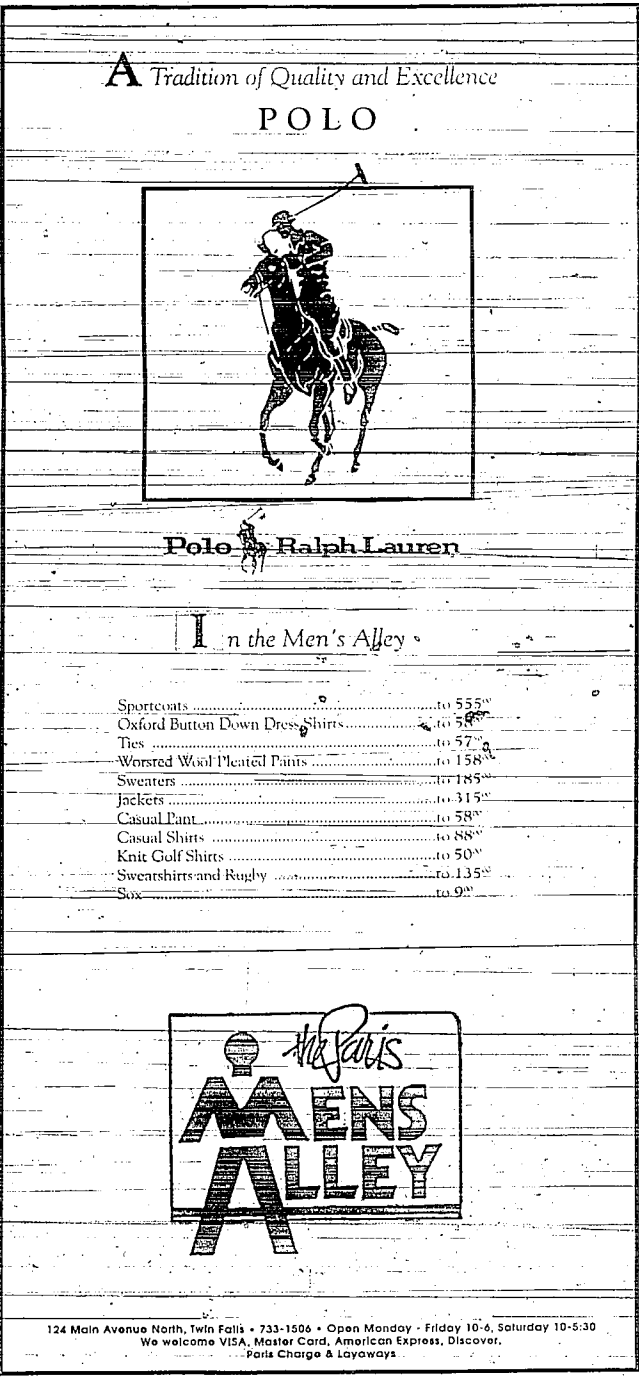 A Tradition of Quality and Excellence
POLO
Polo Ralph Lauren
In the Men's Alley
Sportcoats ........ to 555⁰⁰
Oxford Button Down Dress Shirts ........ to
Ties ........ to 57⁰⁰
Worsted Wool Pleated Pants ........ to 158⁰⁰
Sweaters ........ to 185⁰⁰
Jackets ........ to 315⁰⁰
Casual Pant ........ to 58⁰⁰
Casual Shirts ........ to 88⁰⁰
Knit Golf Shirts ........ to 50⁰⁰
Sweatshirts and Rugby ........ to 135⁰⁰
Sox ........ to 9⁰⁰
the Paris
MENS
ALLEY
124 Main Avenue North, Twin Falls • 733-1506 • Open Monday - Friday 10-6, Saturday 10-5:30
We welcome VISA, Master Card, American Express, Discover,
Paris Charge & Layaways